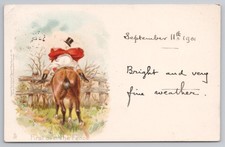 September 11th 190
Bright and very
fine weather.